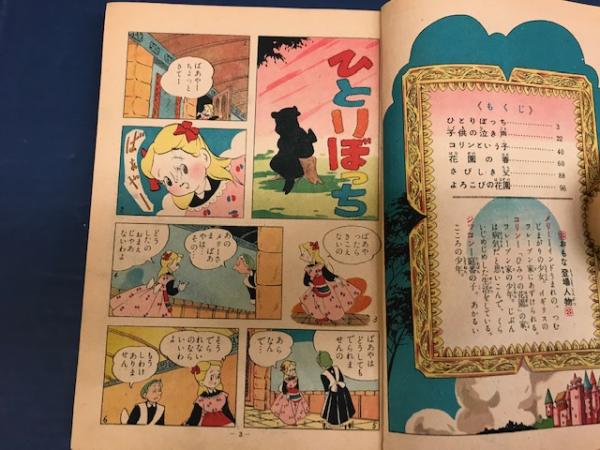 《もくじ》
ひとりぼっち 3
子供の泣き声 22
コリンという子 46
花園の春 68
さびしき父 88
よろこびの花園 96
おもな登場人物
メリー=インドうまれの、つむ
じまがりの少女。イギリスの
クレーブン家にあずけられる。
コリン=ひみつの花園の家、
クレーブン家の少年。じぶん
は病気だと思いこんで、くら
いじめじめした生活をしている。
ジッコン=庭番の子。あかるい
こころの少年。
ひとりぼっち
ばあやー
ちょっと
きてー
ばあやー
ばあやっ
たら
きこえ
ないの
あの
メリーさま
ばあ
やは…
その…
どう
したの
おまえ
じゃあ
ないわよ
ばあやは
どうしても
でられま
せんの
あら
なん
で…
そう
でら
れない
のなら
いいわ
よ
もう
しわけ
ありま
せん
2
3
4
5
6
—3—